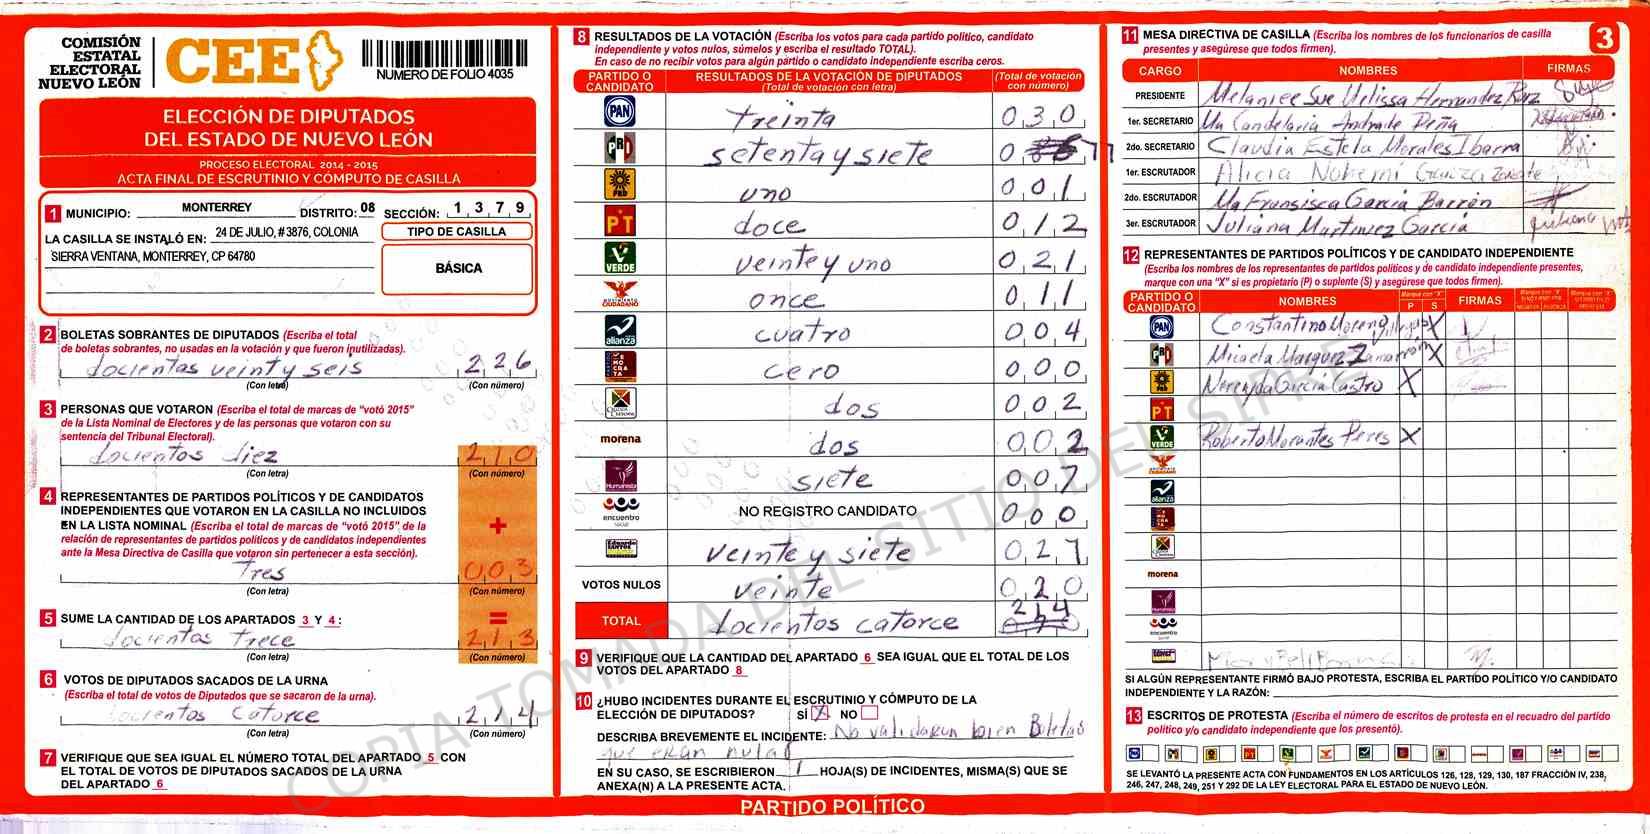 COMISIÓN
ESTATAL
ELECTORAL
NUEVO LEÓN
CEE
NUMERO DE FOLIO 4035
ELECCIÓN DE DIPUTADOS
DEL ESTADO DE NUEVO LEÓN
PROCESO ELECTORAL 2014 - 2015
ACTA FINAL DE ESCRUTINIO Y CÓMPUTO DE CASILLA
1 MUNICIPIO: MONTERREY DISTRITO: 08 SECCIÓN: 1 3 7 9
LA CASILLA SE INSTALÓ EN: 24 DE JULIO, # 3876, COLONIA
SIERRA VENTANA, MONTERREY, CP 64780
TIPO DE CASILLA
BÁSICA
2 BOLETAS SOBRANTES DE DIPUTADOS (Escriba el total
de boletas sobrantes, no usadas en la votación y que fueron inutilizadas).
docientas veinty seis 2 2 6
(Con letra) (Con número)
3 PERSONAS QUE VOTARON (Escriba el total de marcas de “votó 2015”
de la Lista Nominal de Electores y de las personas que votaron con su
sentencia del Tribunal Electoral).
docientos diez 2 1 0
(Con letra) (Con número)
4 REPRESENTANTES DE PARTIDOS POLÍTICOS Y DE CANDIDATOS
INDEPENDIENTES QUE VOTARON EN LA CASILLA NO INCLUIDOS
EN LA LISTA NOMINAL (Escriba el total de marcas de “votó 2015” de la
relación de representantes de partidos políticos y de candidatos independientes
ante la Mesa Directiva de Casilla que votaron sin pertenecer a esta sección).
+
Tres 0 0 3
(Con letra) (Con número)
5 SUME LA CANTIDAD DE LOS APARTADOS 3 Y 4 : =
docientos trece 2 1 3
(Con letra) (Con número)
6 VOTOS DE DIPUTADOS SACADOS DE LA URNA
(Escriba el total de votos de Diputados que se sacaron de la urna).
docientos catorce 2 1 4
(Con letra) (Con número)
7 VERIFIQUE QUE SEA IGUAL EL NÚMERO TOTAL DEL APARTADO 5 CON
EL TOTAL DE VOTOS DE DIPUTADOS SACADOS DE LA URNA
DEL APARTADO 6
8 RESULTADOS DE LA VOTACIÓN (Escriba los votos para cada partido político, candidato
independiente y votos nulos, súmelos y escriba el resultado TOTAL).
En caso de no recibir votos para algún partido o candidato independiente escriba ceros.
PARTIDO O CANDIDATO RESULTADOS DE LA VOTACIÓN DE DIPUTADOS (Total de votación con letra) (Total de votación con número)
PAN treinta 0 3 0
PRI setenta y siete 0 77
PRD uno 0 0 1
PT doce 0 1 2
VERDE veinte y uno 0 2 1
MOVIMIENTO CIUDADANO once 0 1 1
alianza cuatro 0 0 4
DEMOCRATA cero 0 0 0
dos 0 0 2
morena dos 0 0 2
Humanista siete 0 0 7
encuentro social NO REGISTRO CANDIDATO 0 0 0
veinte y siete 0 2 7
VOTOS NULOS veinte 0 2 0
TOTAL docientos catorce 2 1 4
9 VERIFIQUE QUE LA CANTIDAD DEL APARTADO 6 SEA IGUAL QUE EL TOTAL DE LOS
VOTOS DEL APARTADO 8
10 ¿HUBO INCIDENTES DURANTE EL ESCRUTINIO Y CÓMPUTO DE LA
ELECCIÓN DE DIPUTADOS? SÍ X NO
DESCRIBA BREVEMENTE EL INCIDENTE: No validaron bien Boletas
que eran nulas
EN SU CASO, SE ESCRIBIERON 1 HOJA(S) DE INCIDENTES, MISMA(S) QUE SE
ANEXA(N) A LA PRESENTE ACTA.
11 MESA DIRECTIVA DE CASILLA (Escriba los nombres de los funcionarios de casilla
presentes y asegúrese que todos firmen).
3
CARGO NOMBRES FIRMAS
PRESIDENTE Melaniee Sue Melissa Hernandez Ruiz
1er. SECRETARIO Ma Candelaria Andrade Peña
2do. SECRETARIO Claudia Estela Morales Ibarra
1er. ESCRUTADOR Alicia Nohemi Garza
2do. ESCRUTADOR Ma Fransisca García Barrón
3er. ESCRUTADOR Juliana Martinez García Juliana
12 REPRESENTANTES DE PARTIDOS POLÍTICOS Y DE CANDIDATO INDEPENDIENTE
(Escriba los nombres de los representantes de partidos políticos y de candidato independiente presentes,
marque con una “X” si es propietario (P) o suplente (S) y asegúrese que todos firmen).
PARTIDO O CANDIDATO NOMBRES Marque con "X" P S FIRMAS
PAN Constantino Moreno X
PRI Micaela Marquez X
PRD Garcia Castro X
PT
VERDE Roberto Morantes Peres X
alianza
morena
encuentro social
SI ALGÚN REPRESENTANTE FIRMÓ BAJO PROTESTA, ESCRIBA EL PARTIDO POLÍTICO Y/O CANDIDATO
INDEPENDIENTE Y LA RAZÓN:
13 ESCRITOS DE PROTESTA (Escriba el número de escritos de protesta en el recuadro del partido
político y/o candidato independiente que los presentó).
SE LEVANTÓ LA PRESENTE ACTA CON FUNDAMENTOS EN LOS ARTÍCULOS 126, 128, 129, 130, 187 FRACCIÓN IV, 238,
246, 247, 248, 249, 251 Y 292 DE LA LEY ELECTORAL PARA EL ESTADO DE NUEVO LEÓN.
PARTIDO POLÍTICO
COPIA TOMADA DEL SITIO DEL SIPRE